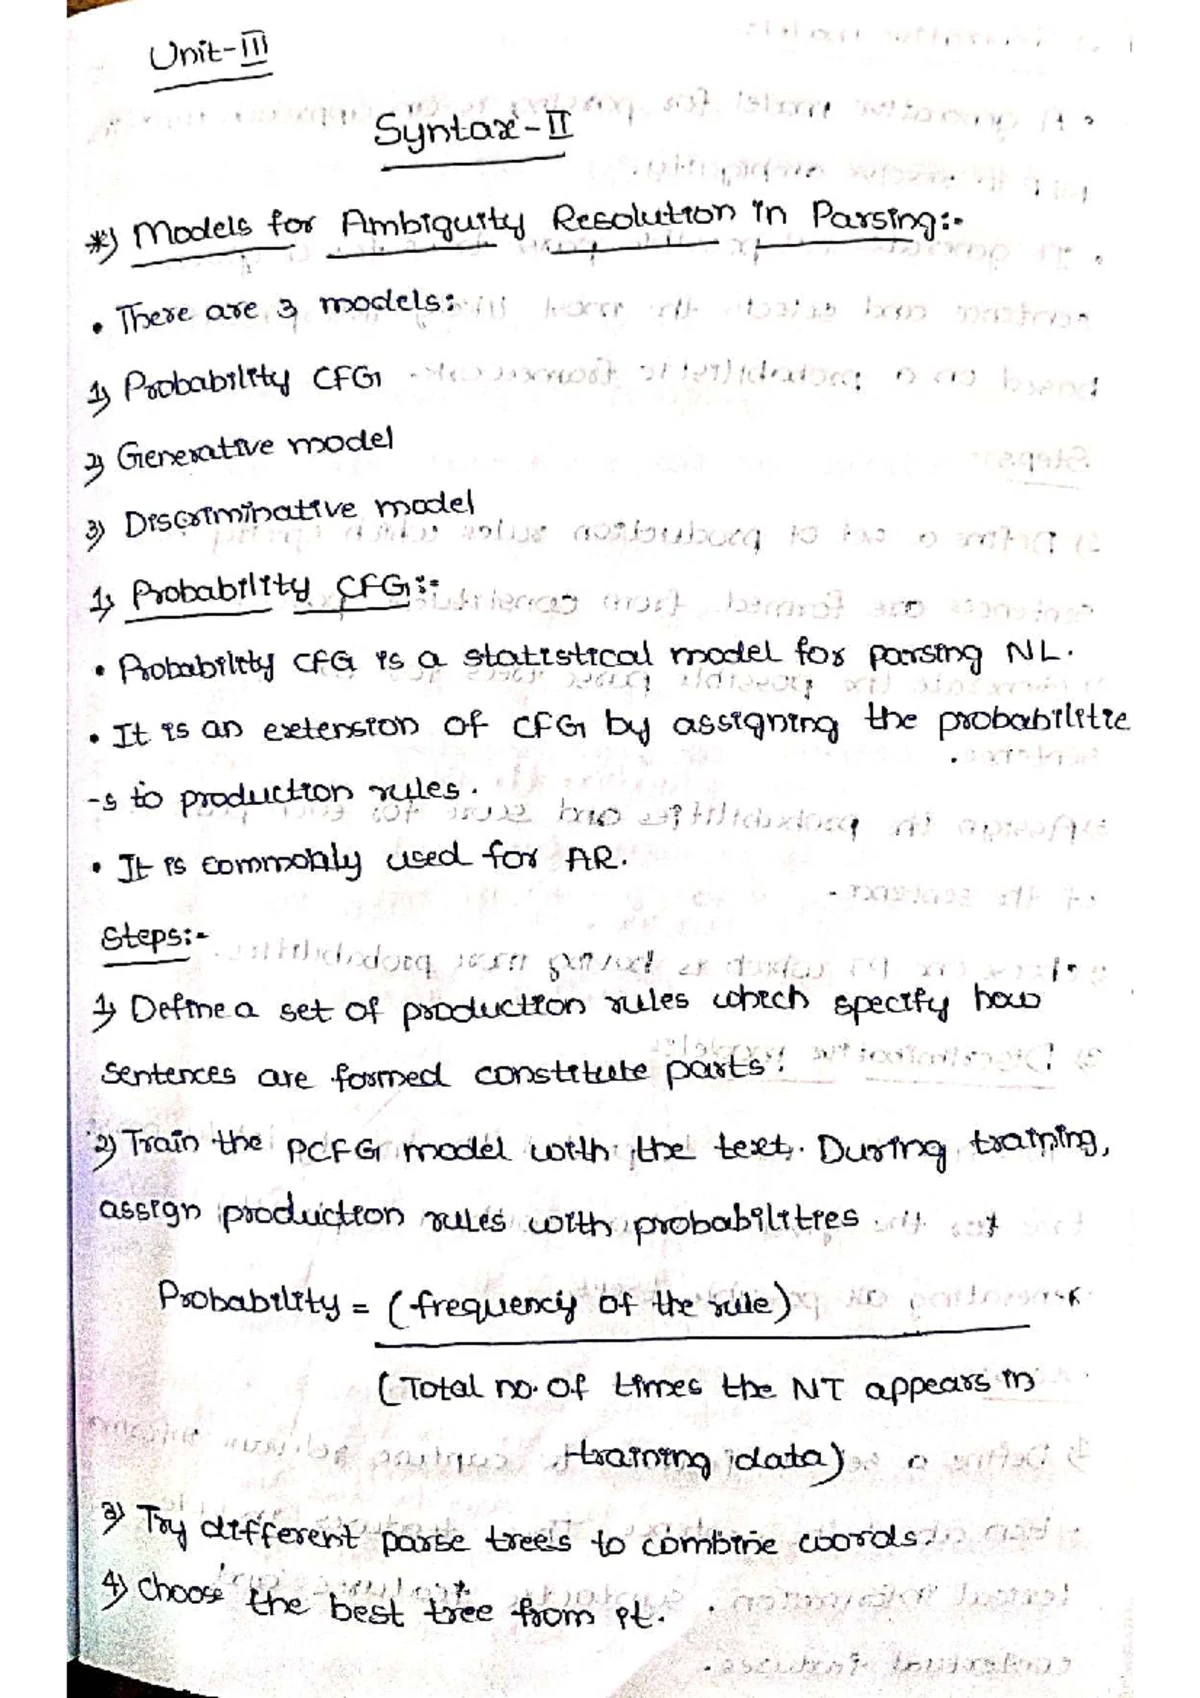 Unit-III
Syntax-II
*) Models for Ambiguity Resolution in Parsing:-
• There are 3 models:
1) Probability CFG
2) Generative model
3) Discriminative model
1) Probability CFG:-
• Probability CFG is a statistical model for parsing NL.
• It is an extension of CFG by assigning the probabilitie
-s to production rules.
• It is commonly used for AR.
Steps:-
1) Define a set of production rules which specify how
sentences are formed constitute parts.
2) Train the PCFG model with the text. During training,
assign production rules with probabilities
Probability = (frequency of the rule)
(Total no. of times the NT appears in
training data)
3) Try different parse trees to combine words.
4) choose the best tree from it.